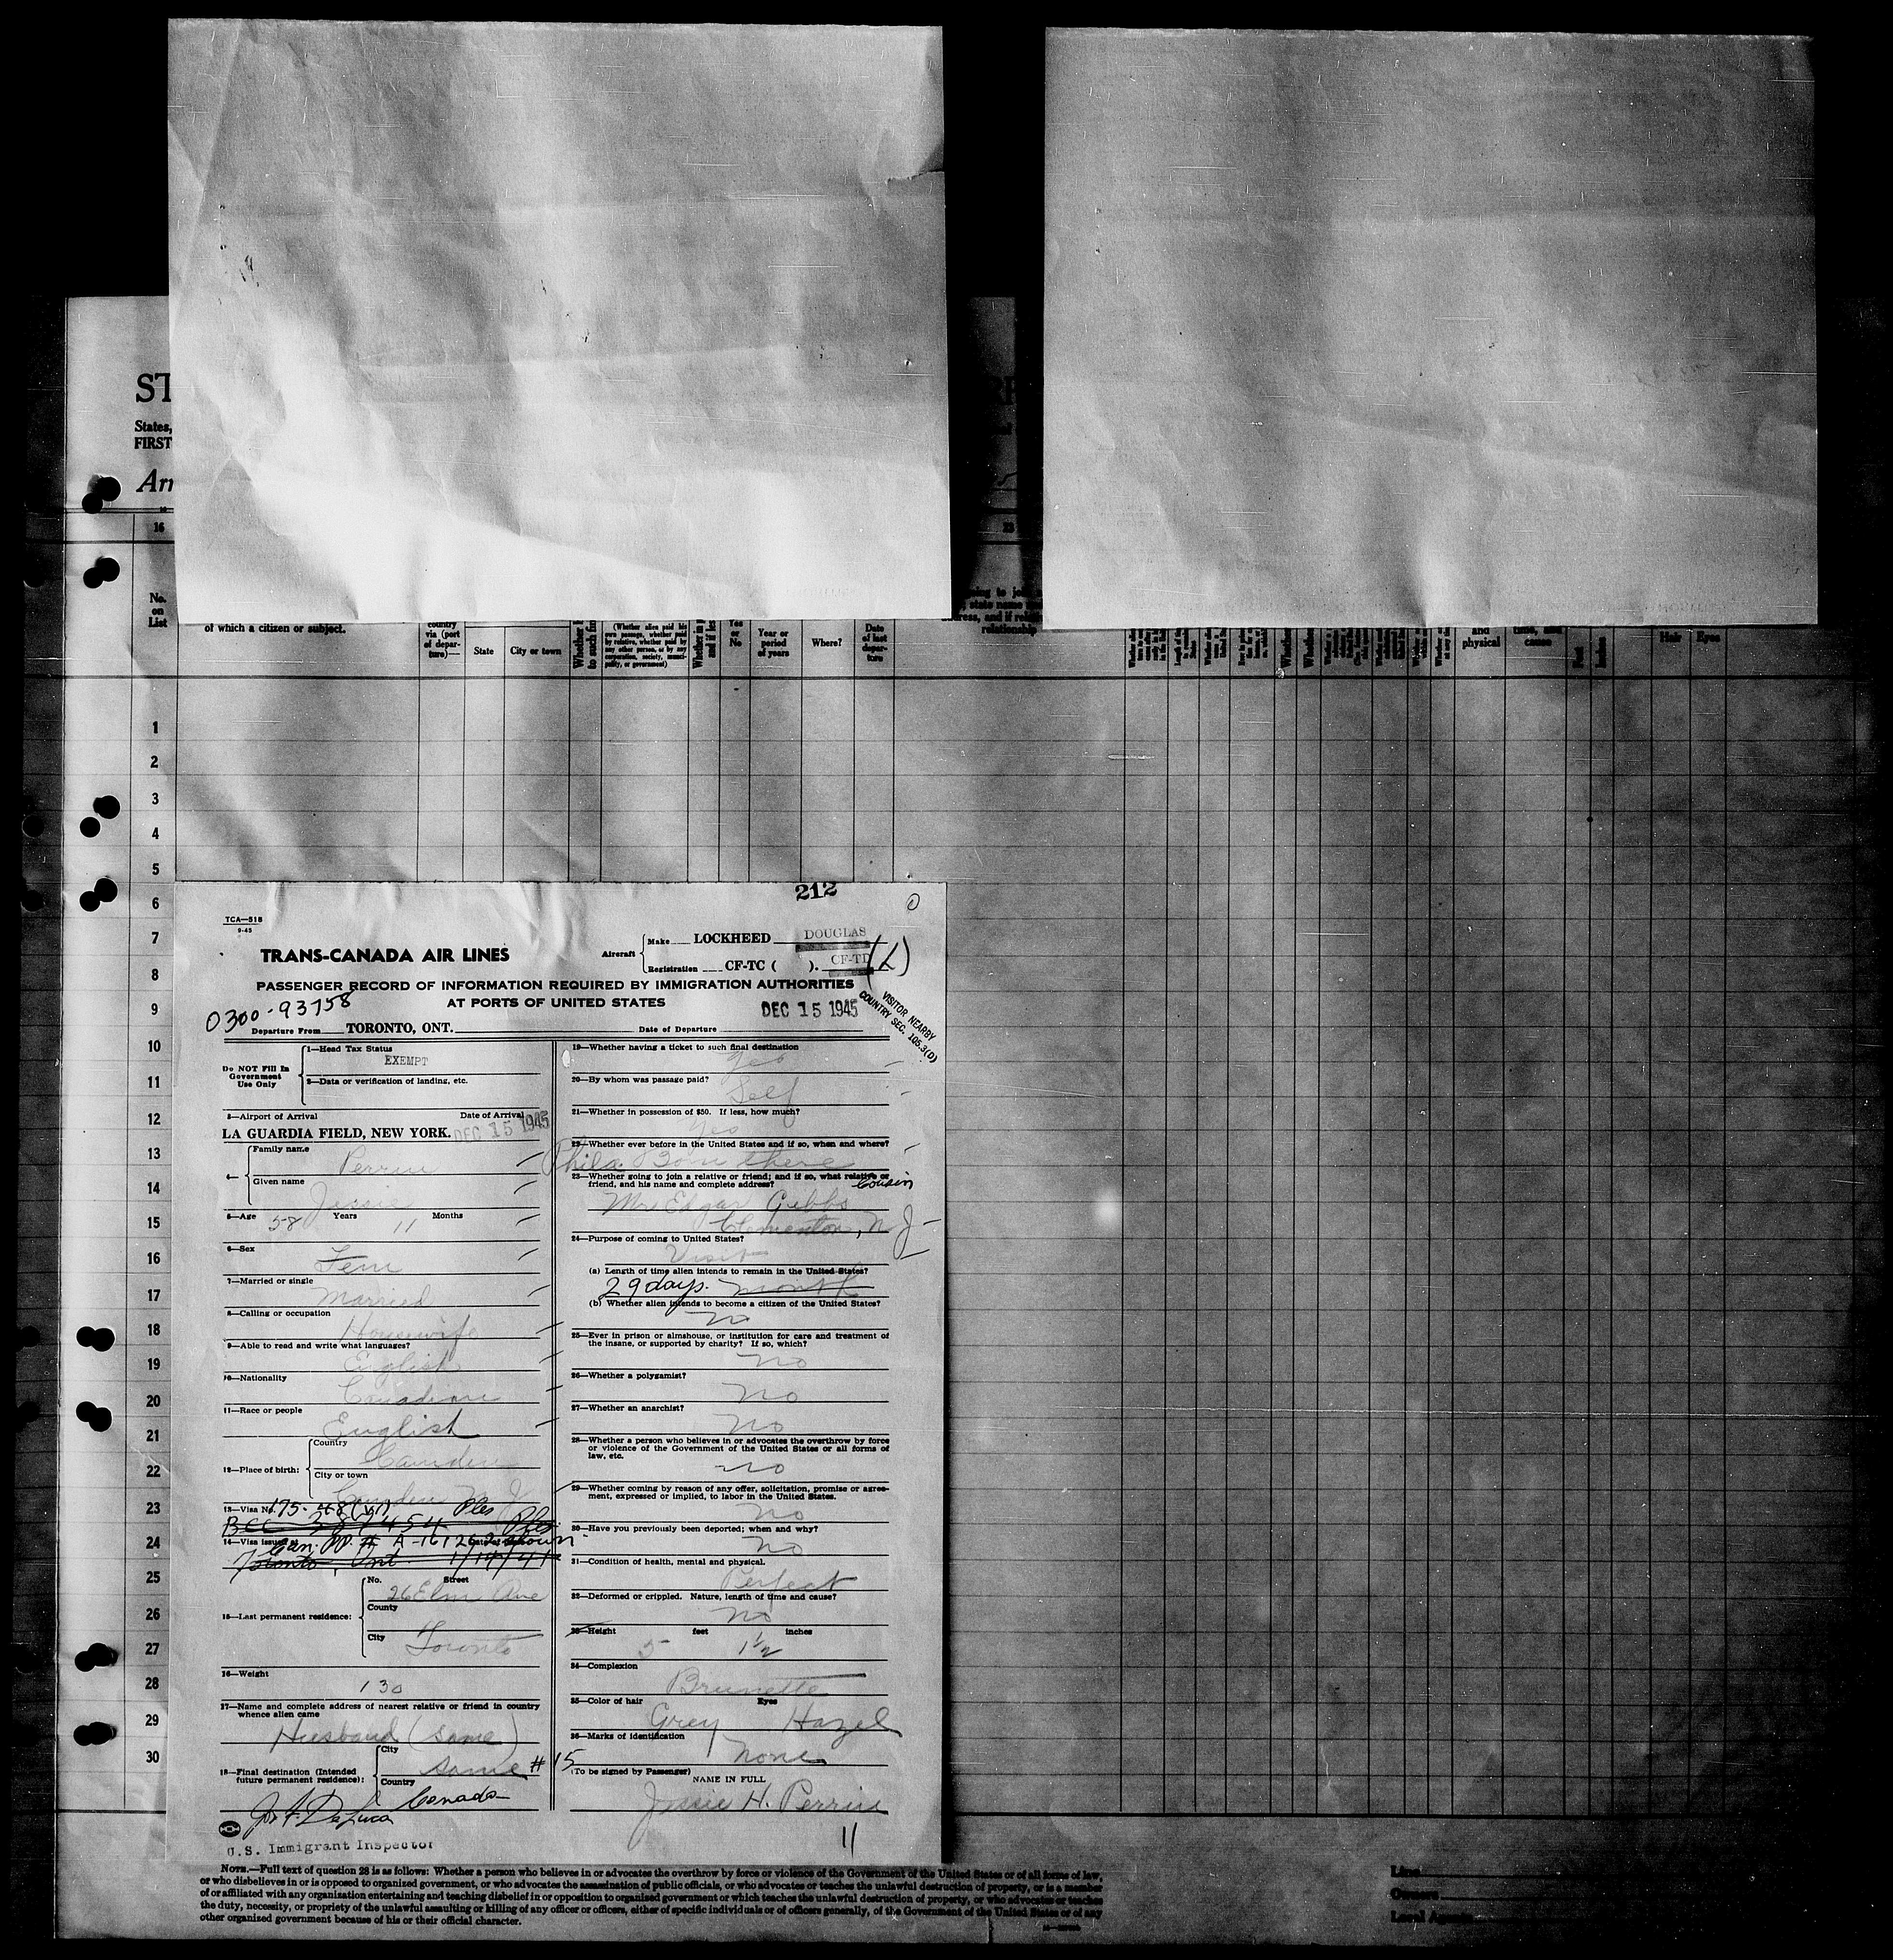 ST
States,
FIRST
Arr
16
23
No.
on
List
of which a citizen or subject.
country
via (port
of depar-
ture)—
State
City or town
(Whether alien paid his
own passage, whether paid
by relative, whether paid by
any other person, or by any
corporation, society, munici-
pality, or government)
Yes
or
No
Year or
period
of years
Where?
Date
of last
depar-
ture
relationship
and
physical
cause
Feet
Inches
Hair
Eyes
1
2
3
4
5
6
7
8
9
10
11
12
13
14
15
16
17
18
19
20
21
22
23
24
25
26
27
28
29
30
212
TCA—518
9-45
TRANS-CANADA AIR LINES
Aircraft
Make LOCKHEED DOUGLAS
Registration CF-TC ( ). CF-TD (L)
PASSENGER RECORD OF INFORMATION REQUIRED BY IMMIGRATION AUTHORITIES
AT PORTS OF UNITED STATES
0300-93758
DEC 15 1945
VISITOR NEARBY
COUNTRY SEC. 105.3(D)
Departure From TORONTO, ONT. Date of Departure
Do NOT Fill In
Government
Use Only
1—Head Tax Status
EXEMPT
2—Data or verification of landing, etc.
3—Airport of Arrival Date of Arrival
LA GUARDIA FIELD, NEW YORK. DEC 15 1945
4—
Family name
Perrin
Given name
Jessie
5—Age 58 Years 11 Months
6—Sex
Fem
7—Married or single
Married
8—Calling or occupation
Housewife
9—Able to read and write what languages?
English
10—Nationality
Canadian
11—Race or people
English
12—Place of birth:
Country
Camden
City or town
Camden N J
13—Visa No. 175- (VI) Ples
BCC 387454 Ples
14—Visa issued at Can. PP. # A-161262 shown
Toronto, Ont. 1/14/41
15—Last permanent residence:
No. Street
26 Elm Ave
County
City
Toronto
16—Weight
130
17—Name and complete address of nearest relative or friend in country
whence alien came
Husband (same)
18—Final destination (Intended
future permanent residence):
City
same #15
Country
Canada
Jos. F. DeLuca
U.S. Immigrant Inspector
19—Whether having a ticket to such final destination
Yes
20—By whom was passage paid?
Self
21—Whether in possession of $50. If less, how much?
Yes
22—Whether ever before in the United States and if so, when and where?
Phila. Born there
23—Whether going to join a relative or friend; and if so, what relative or
friend, and his name and complete address?
Cousin
Mr Edgar Gibbs
Clementon, N J
24—Purpose of coming to United States?
Visit
(a) Length of time alien intends to remain in the United States?
29 days. month
(b) Whether alien intends to become a citizen of the United States?
No
25—Ever in prison or almshouse, or institution for care and treatment of
the insane, or supported by charity? If so, which?
No
26—Whether a polygamist?
No
27—Whether an anarchist?
No
28—Whether a person who believes in or advocates the overthrow by force
or violence of the Government of the United States or all forms of
law, etc.
No
29—Whether coming by reason of any offer, solicitation, promise or agree-
ment, expressed or implied, to labor in the United States.
No
30—Have you previously been deported; when and why?
No
31—Condition of health, mental and physical.
Perfect
32—Deformed or crippled. Nature, length of time and cause?
No
33—Height feet inches
5 1½
34—Complexion
Brunette
35—Color of hair Eyes
Grey Hazel
36—Marks of identification
None
(To be signed by Passenger)
NAME IN FULL
Jessie H. Perrin
11
NOTE.—Full text of question 28 is as follows: Whether a person who believes in or advocates the overthrow by force or violence of the Government of the United States or of all forms of law,
or who disbelieves in or is opposed to organized government, or who advocates the assassination of public officials, or who advocates or teaches the unlawful destruction of property, or is a member
of or affiliated with any organization entertaining and teaching disbelief in or opposition to organized government or which teaches the unlawful destruction of property, or who advocates or teaches
the duty, necessity, or propriety of the unlawful assaulting or killing of any officer or officers, either of specific individuals or of officers generally, of the Government of the United States or of any
other organized government because of his or their official character.
Line
Owners
Local Agents